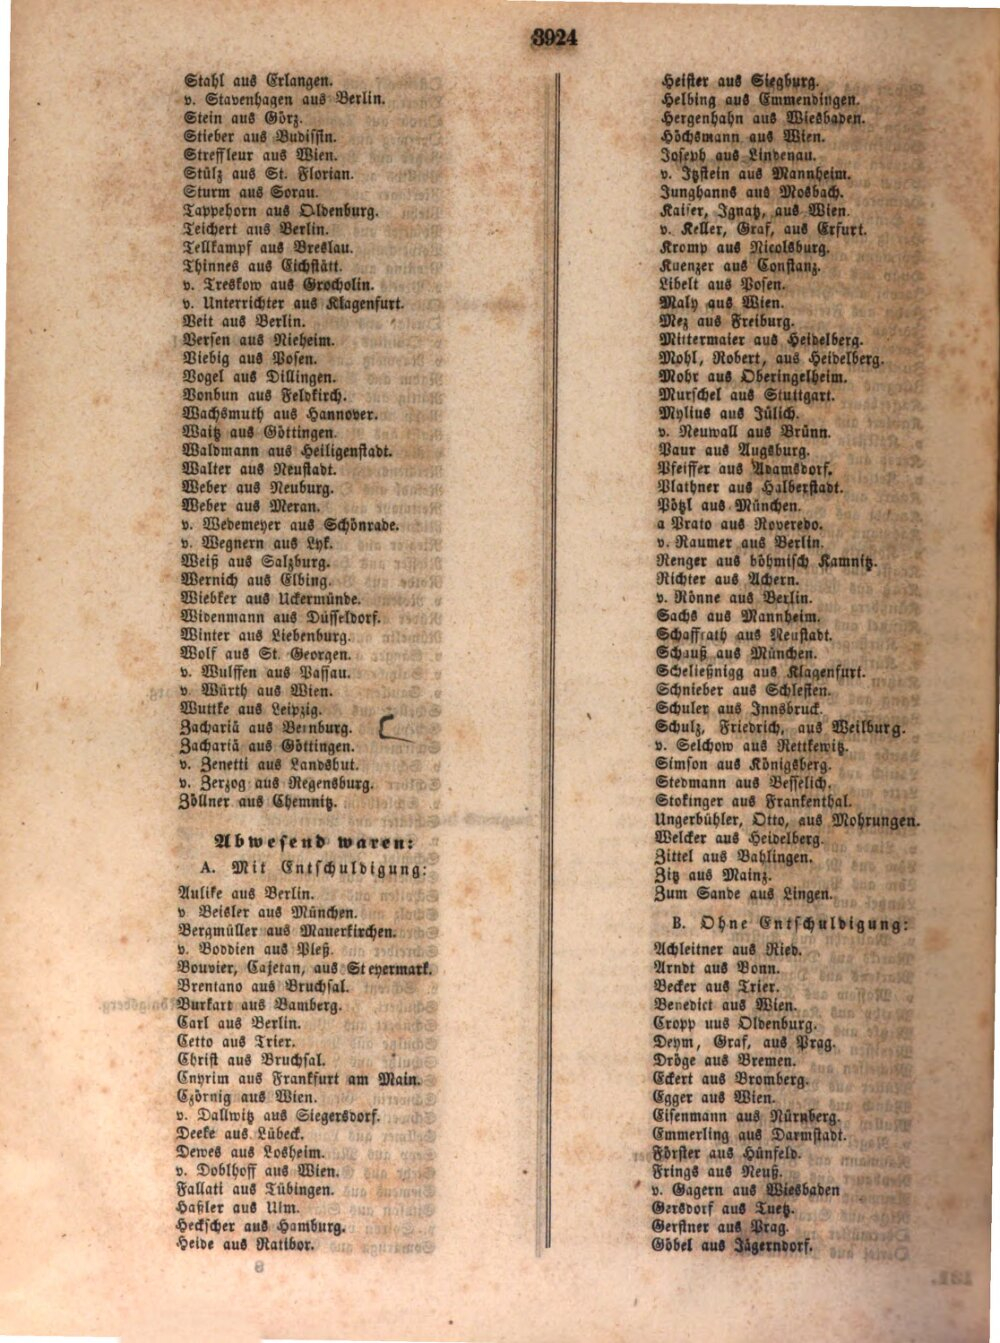 3924
Stahl aus Erlangen.
v. Stavenhagen aus Berlin.
Stein aus Görz.
Stieber aus Budissin.
Streffleur aus Wien.
Stülz aus St. Florian.
Sturm aus Sorau.
Tappehorn aus Oldenburg.
Teichert aus Berlin.
Tellkampf aus Breslau.
Thinnes aus Eichstätt.
v. Treskow aus Grocholin.
v. Unterrichter aus Klagenfurt.
Veit aus Berlin.
Versen aus Nieheim.
Viebig aus Posen.
Vogel aus Dillingen.
Vonbun aus Feldkirch.
Wachsmuth aus Hannover.
Waitz aus Göttingen.
Waldmann aus Heiligenstadt.
Walter aus Neustadt.
Weber aus Neuburg.
Weber aus Meran.
v. Wedemeyer aus Schönrade.
v. Wegnern aus Lyk.
Weiß aus Salzburg.
Wernich aus Elbing.
Wiebker aus Uckermünde.
Widenmann aus Düsseldorf.
Winter aus Liebenburg.
Wolf aus St. Georgen.
v. Wulffen aus Passau.
v. Würth aus Wien.
Wuttke aus Leipzig.
Zachariä aus Bernburg.
Zachariä aus Göttingen.
v. Zenetti aus Landshut.
v. Zerzog aus Regensburg.
Zöllner aus Chemnitz.
Abwesend waren:
A. Mit Entschuldigung:
Aulike aus Berlin.
v Beisler aus München.
Bergmüller aus Mauerkirchen.
v. Boddien aus Pleß.
Bouvier, Cajetan, aus Steyermark.
Brentano aus Bruchsal.
Burkart aus Bamberg.
Carl aus Berlin.
Cetto aus Trier.
Christ aus Bruchsal.
Cnyrim aus Frankfurt am Main.
Czörnig aus Wien.
v. Dallwitz aus Siegersdorf.
Deeke aus Lübeck.
Dewes aus Losheim.
v. Doblhoff aus Wien.
Fallati aus Tübingen.
Haßler aus Ulm.
Heckscher aus Hamburg.
Heide aus Ratibor.
Heister aus Siegburg.
Helbing aus Emmendingen.
Hergenhahn aus Wiesbaden.
Höchsmann aus Wien.
Joseph aus Lindenau.
v. Itzstein aus Mannheim.
Junghanns aus Mosbach.
Kaiser, Ignatz, aus Wien.
v. Keller, Graf, aus Erfurt.
Kromp aus Nicolsburg.
Kuenzer aus Constanz.
Libelt aus Posen.
Maly aus Wien.
Mez aus Freiburg.
Mittermaier aus Heidelberg.
Mohl, Robert, aus Heidelberg.
Mohr aus Oberingelheim.
Murschel aus Stuttgart.
Mylius aus Jülich.
v. Neuwall aus Brünn.
Paur aus Augsburg.
Pfeiffer aus Adamsdorf.
Plathner aus Halberstadt.
Pözl aus München.
a Prato aus Roveredo.
v. Raumer aus Berlin.
Renger aus böhmisch Kamnitz.
Richter aus Achern.
v. Rönne aus Berlin.
Sachs aus Mannheim.
Schaffrath aus Neustadt.
Schauß aus München.
Scheließnigg aus Klagenfurt.
Schnieber aus Schlesien.
Schuler aus Innsbruck.
Schulz, Friedrich, aus Weilburg.
v. Selchow aus Rettkewitz.
Simson aus Königsberg.
Stedmann aus Besselich.
Stokinger aus Frankenthal.
Ungerbühler, Otto, aus Mohrungen.
Welcker aus Heidelberg.
Zittel aus Bahlingen.
Zitz aus Mainz.
Zum Sande aus Lingen.
B. Ohne Entschuldigung:
Achleitner aus Ried.
Arndt aus Bonn.
Becker aus Trier.
Benedict aus Wien.
Cropp uus Oldenburg.
Deym, Graf, aus Prag.
Dröge aus Bremen.
Eckert aus Bromberg.
Egger aus Wien.
Eisenmann aus Nürnberg.
Emmerling aus Darmstadt.
Förster aus Hünfeld.
Frings aus Neuß.
v. Gagern aus Wiesbaden
Gersdorf aus Tuetz.
Gerstner aus Prag.
Göbel aus Jägerndorf.